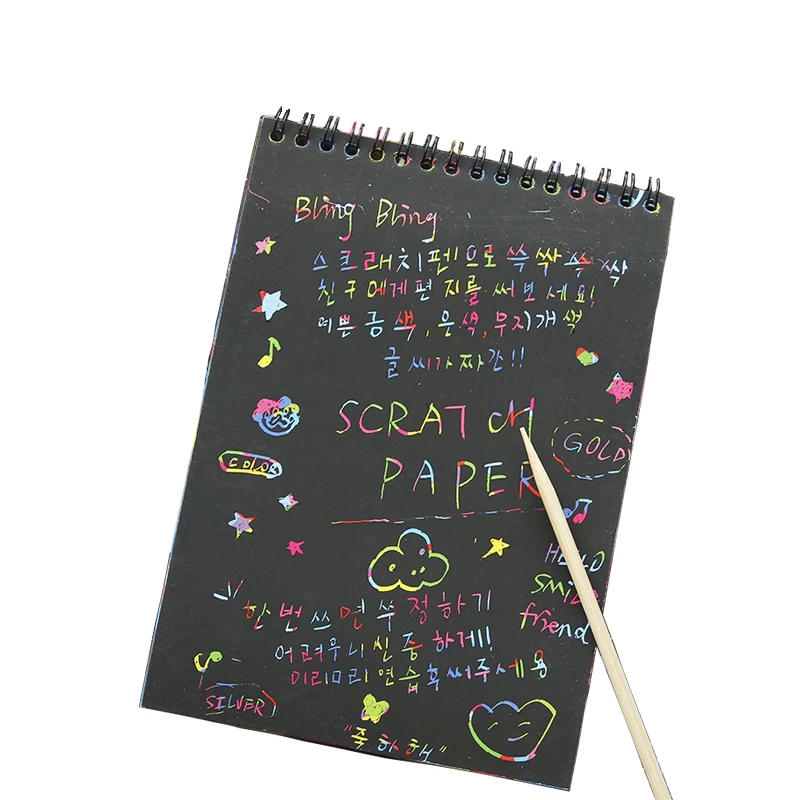 Bling Bling
스크래치펜으로 쓱싹쓱싹
친구에게 편지를 써보세요!
예쁜 금색, 은색, 무지개색
글씨가 짜잔!!
SCRATCH
GOLD
PAPER
COLOR
HELLO
SMILE
friend
한번 쓰면 쑥정하기
어려우니 신중하게!!
미리미리 연습 후 써주세용
SILVER
"축하해"